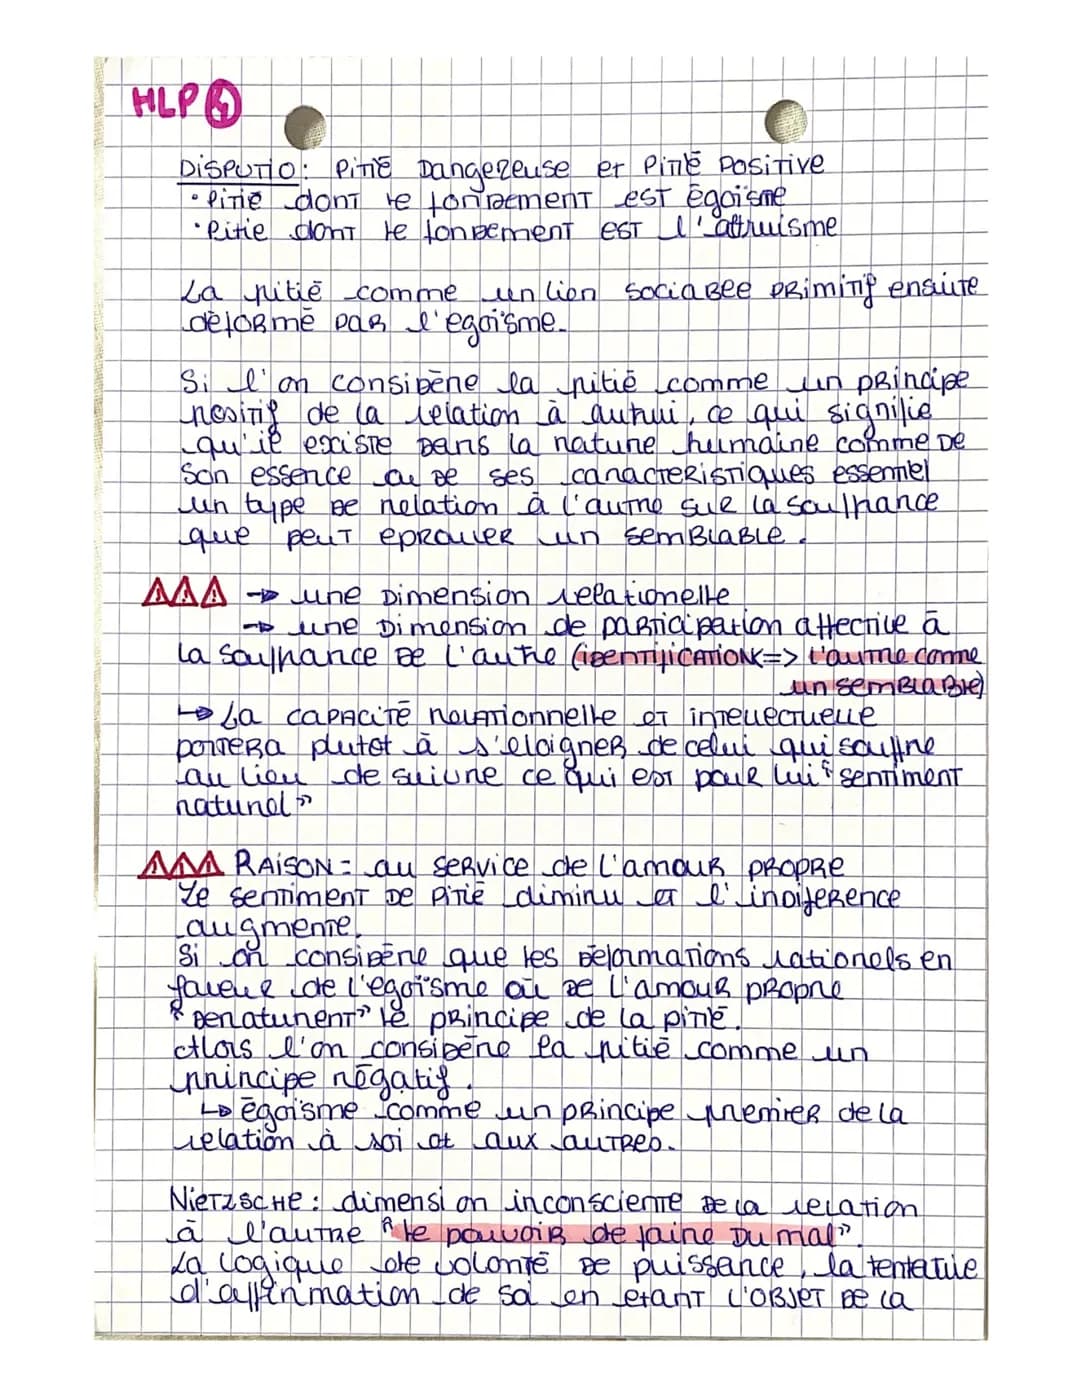 HLP 4
Disputio : Pitié Dangereuse et Pitié Positive
• Pitié dont le fondement est égoïsme
• Pitie dont le fondement est l'altruisme
La pitié comme un lien sociable primitif ensuite
déformé par l'égoïsme.
Si l'on considère la pitié comme un principe
positif de la relation à autrui, ce qui signifie
qu'il existe dans la nature humaine comme de
son essence ou de ses caractéristiques essentiel
un type de relation à l'autre sur la souffrance
que peut eprouver un semblable.
→ une dimension relationelle
→ une dimension de participation affective à
la souffrance de l'autre (identification => l'autre comme
un semblable)
↳ La capacité relationnelle et intellectuelle
portera plutot à s'eloigner de celui qui souffre
au lieu de suivre ce qui est pour lui "sentiment
naturel"
Raison = au service de l'amour propre
Le sentiment de pitié diminu et l'indiference
augmente.
Si on considère que les déformations rationels en
faveur de l'egoïsme où de l'amour propre
"denaturent" le principe de la pitié.
Alors l'on considère la pitié comme un
principe négatif.
↳ égoïsme comme un principe premier de la
relation à soi et aux autres.
Nietzsche : dimension inconsciente de la relation
à l'autre "le pouvoir de faire du mal".
La logique de volonté de puissance, la tentative
d'affirmation de soi en etant l'objet de la